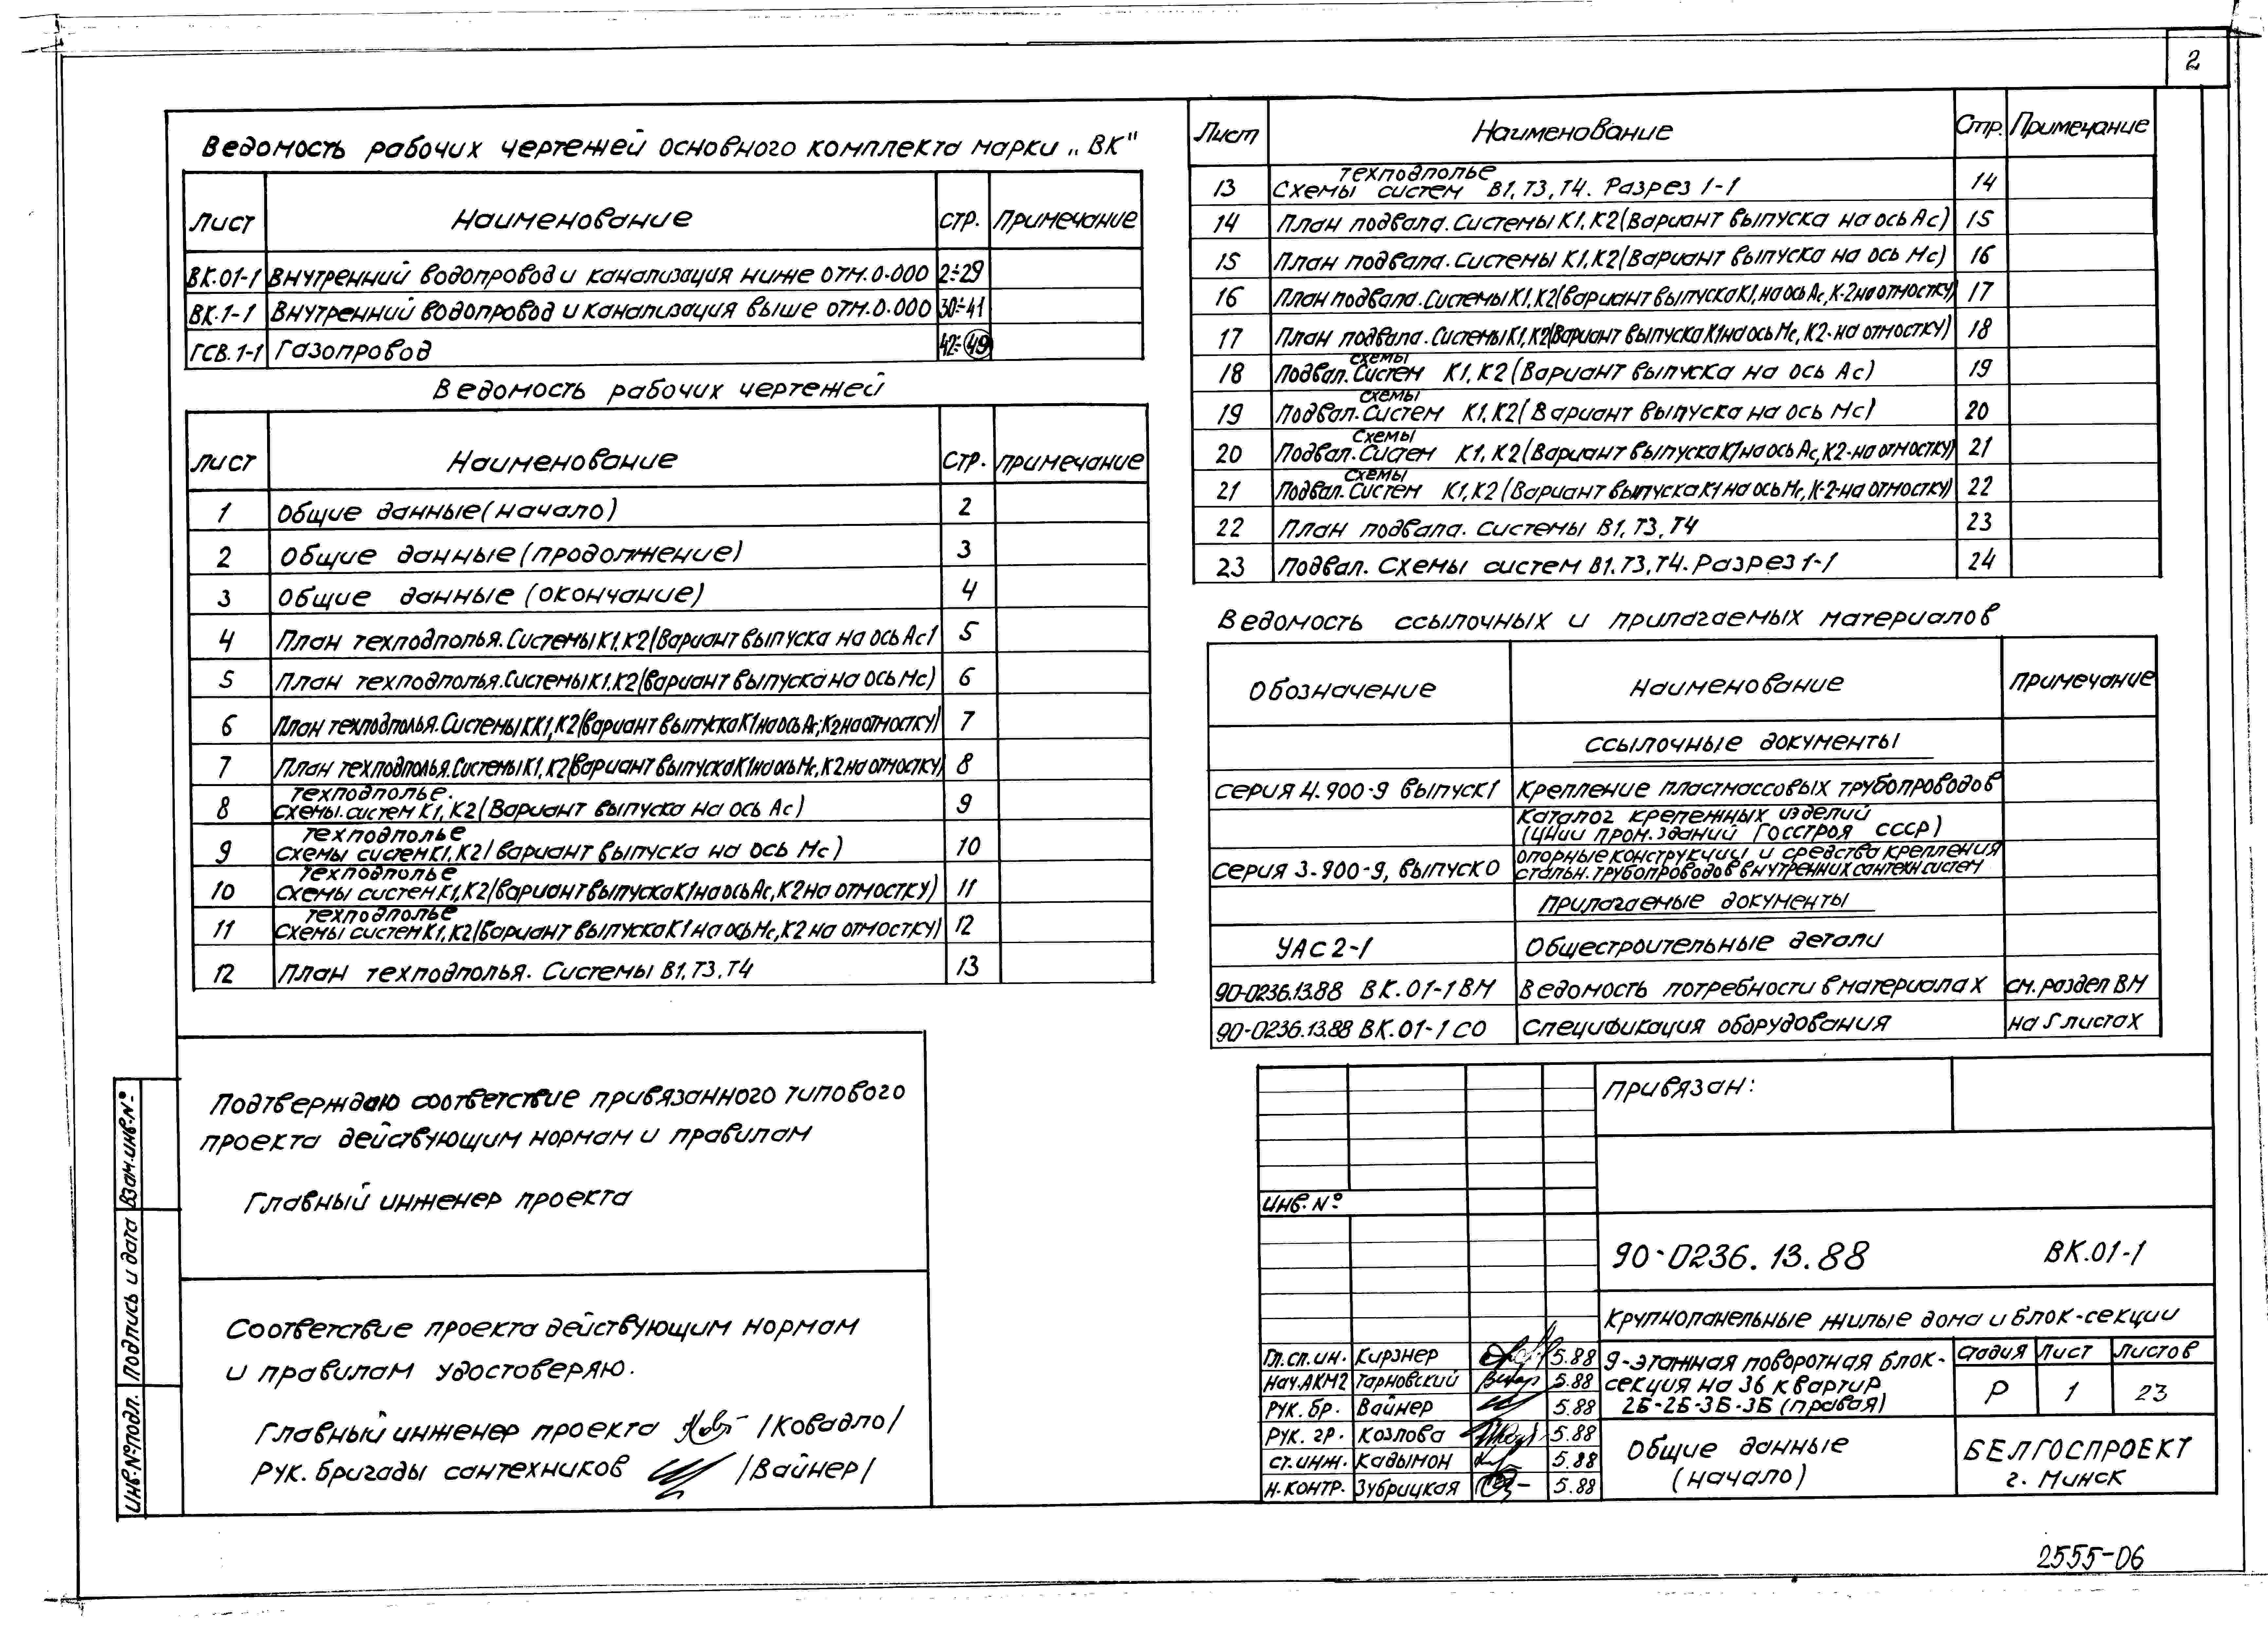 2
Ведомость рабочих чертежей основного комплекта марки „ВК"
Лист Наименование стр. Примечание
ВК.01-1 Внутренний водопровод и канализация ниже отм.0.000 2÷29
ВК.1-1 Внутренний водопровод и канализация выше отм.0.000 30÷41
ГСВ.1-1 Газопровод 42÷49
Ведомость рабочих чертежей
Лист Наименование стр. примечание
1 Общие данные (начало) 2
2 Общие данные (продолжение) 3
3 Общие данные (окончание) 4
4 План техподполья. Системы К1, К2 (Вариант выпуска на ось Ас) 5
5 План техподполья. Системы К1, К2 (вариант выпуска на ось Мс) 6
6 План техподполья. Системы КК1, К2 (вариант выпуска К1 на ось Ас; К2 на отмостку) 7
7 План техподполья. Системы К1, К2 (вариант выпуска К1 на ось Мс, К2 на отмостку) 8
8 техподполье.
схемы. систем К1, К2 (Вариант выпуска на ось Ас) 9
9 техподполье
схемы систем К1, К2 (вариант выпуска на ось Мс) 10
10 техподполье
схемы систем К1, К2 (вариант выпуска К1 на ось Ас, К2 на отмостку) 11
11 техподполье
схемы систем К1, К2 (вариант выпуска К1 на ось Мс, К2 на отмостку) 12
12 План техподполья. Системы В1, Т3, Т4 13
Лист Наименование Стр. Примечание
13 техподполье
Схемы систем В1, Т3, Т4. Разрез 1-1 14
14 План подвала. Системы К1, К2 (Вариант выпуска на ось Ас) 15
15 План подвала. Системы К1, К2 (Вариант выпуска на ось Мс) 16
16 План подвала. Системы К1, К2 (вариант выпуска К1, на ось Ас, К-2 на отмостку) 17
17 План подвала. Системы К1, К2 (Вариант выпуска К1 на ось Мс, К2-на отмостку) 18
18 схемы
Подвал. Систем К1, К2 (Вариант выпуска на ось Ас) 19
19 схемы
Подвал. Систем К1, К2 (Вариант выпуска на ось Мс) 20
20 схемы
Подвал. Систем К1, К2 (Вариант выпуска К1 на ось Ас, К2-на отмостку) 21
21 схемы
Подвал. Систем К1, К2 (Вариант выпуска К1 на ось Мс, К-2-на отмостку) 22
22 План подвала. Системы В1, Т3, Т4 23
23 Подвал. Схемы систем В1, Т3, Т4. Разрез 1-1 24
Ведомость ссылочных и прилагаемых материалов
Обозначение Наименование примечание
ссылочные документы
серия 4.900-9 выпуск 1 Крепление пластмассовых трубопроводов
Каталог крепежных изделий
(ЦНИИ пром. зданий Госстроя СССР)
серия 3.900-9, выпуск 0 опорные конструкции и средства крепления
стальн. трубопроводов внутренних сантехн систем
прилагаемые документы
УАС 2-1 Общестроительные детали
90-0236.13.88 ВК.01-1 ВМ Ведомость потребности в материалах см. раздел ВМ
90-0236.13.88 ВК.01-1 СО Спецификация оборудования на 5 листах
Подтверждаю соответствие привязанного типового
проекта действующим нормам и правилам
Главный инженер проекта
Соответствие проекта действующим нормам
и правилам удостоверяю.
Главный инженер проекта /Ковадло/
Рук. бригады сантехников /Вайнер/
Взам.инв.№
Подпись и дата
Инв.№подл.
Привязан:
Инв.№
90-0236.13.88 ВК.01-1
Крупнопанельные жилые дома и блок-секции
Гл.сп.ин. Кирзнер 5.88
Нач.АКМ2 Тарновский 5.88
Рук. бр. Вайнер 5.88
Рук. гр. Козлова 5.88
ст.инж. Кадымон 5.88
Н.контр. Зубрицкая 5.88
9-этажная поворотная блок-
секция на 36 квартир
2Б-2Б-3Б-3Б (правая)
Стадия Лист Листов
Р 1 23
Общие данные
(начало)
БЕЛГОСПРОЕКТ
г. Минск
2555-06